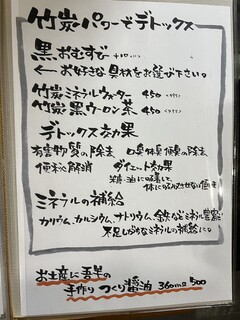 竹炭パワーでデトックス
黒おむすび
← お好きな具材をお選び下さい。
竹炭ミネラルウォーター 450
竹炭黒ウーロン茶 450
デトックス効果
有害物質の除去 口臭体臭便臭の除去
便秘解消 ダイエット効果
糖・油に吸着して、
ミネラルの補給
カリウム、カルシウム、ナトリウム、鉄などミネラル豊富
不足しがちなミネラルの補給に。
お土産に吾羊の
手作りつくり醤油 360ml 500